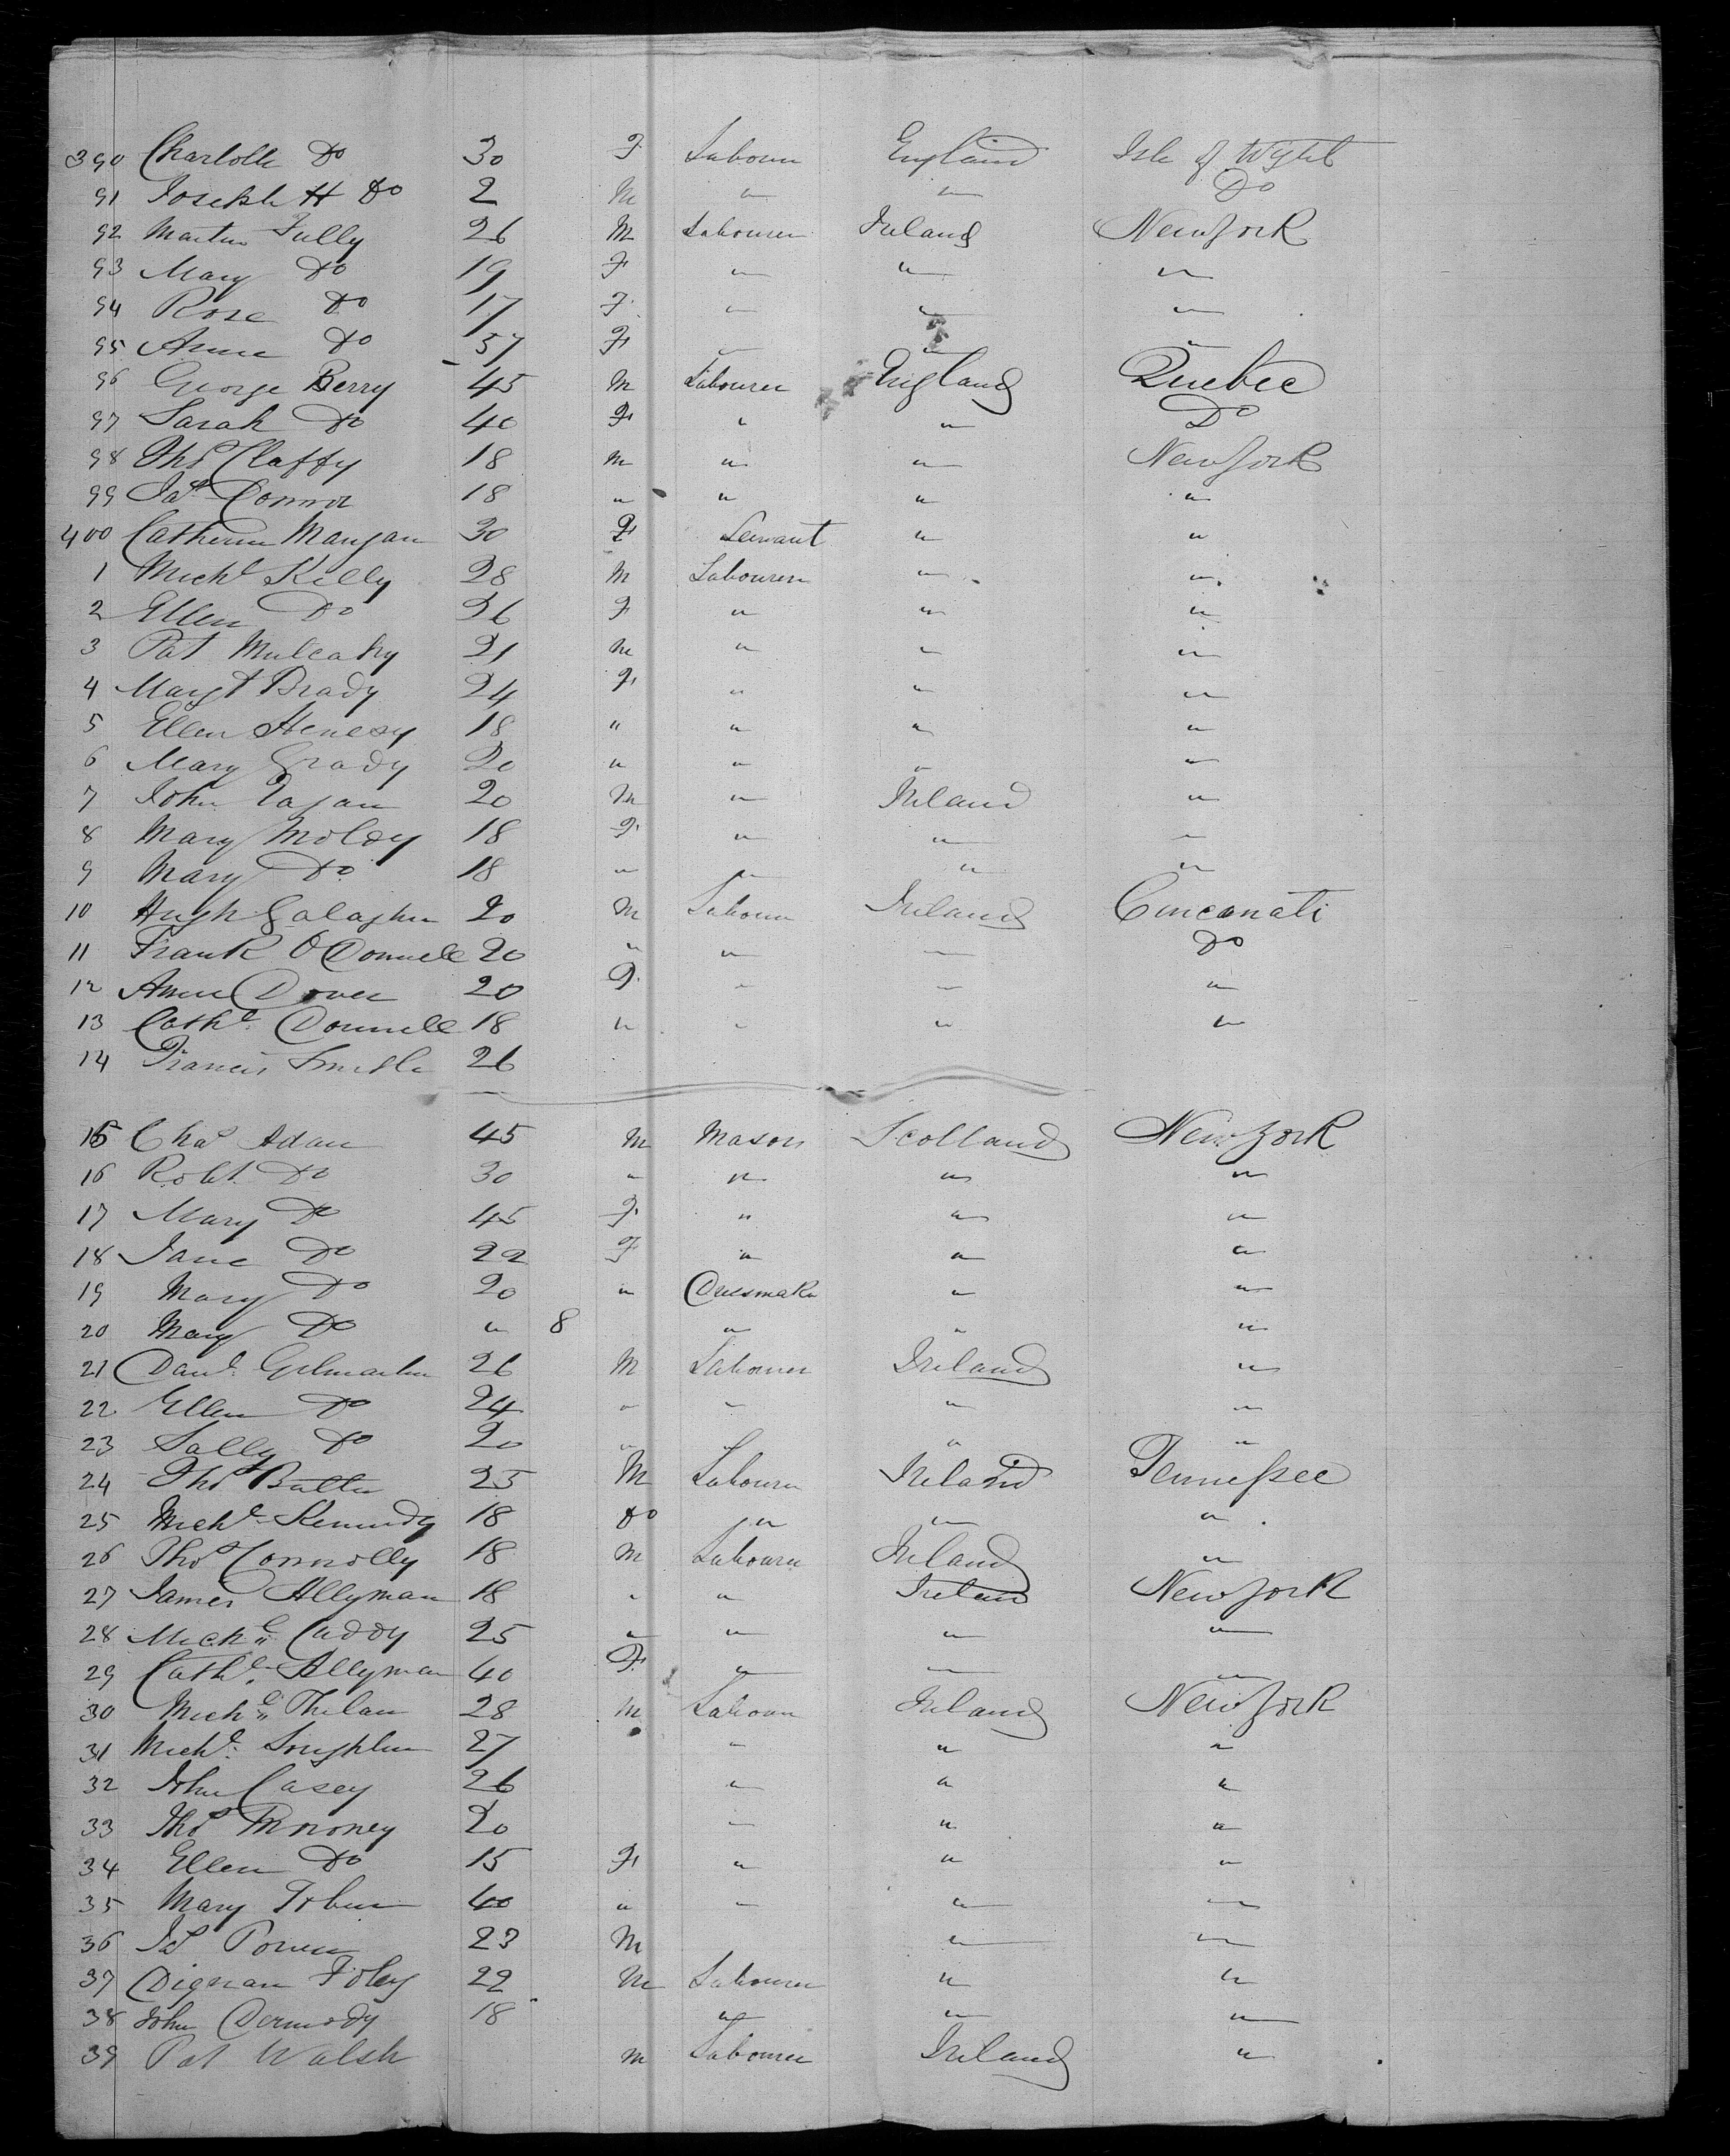 390 Charlotte Do 30 F Labourer England Isle of Wight
91 Joseph H Do 2 M " " Do
92 Martin Tully 26 M Labourer Ireland New York
93 Mary Do 19 F " " "
94 Rose Do 17 F " " "
95 Anne Do 57 F " " "
96 George Berry 45 M Labourer England Quebec
97 Sarah Do 40 F " " Do
98 Thos Claffy 18 M " " New York
99 Jas Connor 18 " " " "
400 Catherine Mangan 30 F Servant " "
1 Michl Kelly 28 M Labourer " "
2 Ellen Do 26 F " " "
3 Pat Mulcahy 21 M " " "
4 Margt Brady 24 F " " "
5 Ellen Henesy 18 " " " "
6 Mary Grady 20 " " " "
7 John 20 M " Ireland "
8 Mary Moloy 18 F " " "
9 Mary Do 18 " " " "
10 Hugh Galagher 20 M Labourer Ireland Cincanati
11 Frank O Donnell 20 " " " Do
12 Anne Dover 20 F " " "
13 Cathe Donnell 18 " " " "
14 Francis Smith 26
15 Chas Adam 45 M Mason Scotland New York
16 Robt Do 30 " " " "
17 Mary Do 45 F " " "
18 Jane Do 22 F " " "
19 Mary Do 20 " Dressmaker " "
20 Mary Do " 8 " " "
21 Danl Gilmartin 26 M Labourer Ireland "
22 Ellen Do 24 " " " "
23 Sally Do 20 " " " "
24 Thos Butler 25 M Labourer Ireland Tennessee
25 Michl Kennedy 18 Do " " "
26 Thos Connolly 18 M Labourer Ireland "
27 James Allyman 18 " " Ireland New York
28 Michl Caddy 25 " " " "
29 Cathe Allyman 40 F " " "
30 Michl Phelan 28 M Labourer Ireland New York
31 Michl Loughlin 27 " " "
32 John Casey 26 " " "
33 Thos Mrroney 20 " " "
34 Ellen Do 15 F " " "
35 Mary Tobin 40 " " " "
36 Js Power 23 M " "
37 Dignan Foley 22 M Labourer " "
38 John Dermody 18 " " "
39 Pat Walsh M Labourer Ireland "